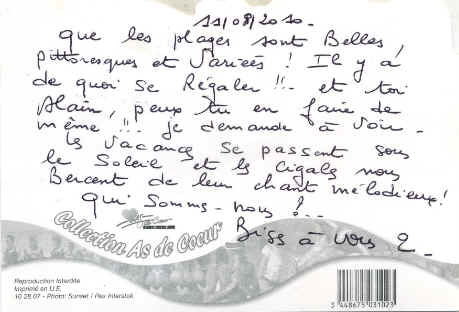 11/08/2010.
que les plages sont Belles,
pittoresques et Variées ! Il y a
de quoi se Régaler !!. et toi
Alain, peux tu en faire de
même !!. je demande à voir.
ls Vacances se passent sous
le Soleil et ls Cigals nous
Bercent de leur chant mélodieux !
qui Somms-nous ?..
Biss à vous 2.
Collection As de Coeur
Reproduction Interdite
Imprimé en U.E.
10 28 07 - Photo: Sunset / Rex Interstok
3 448675 031023